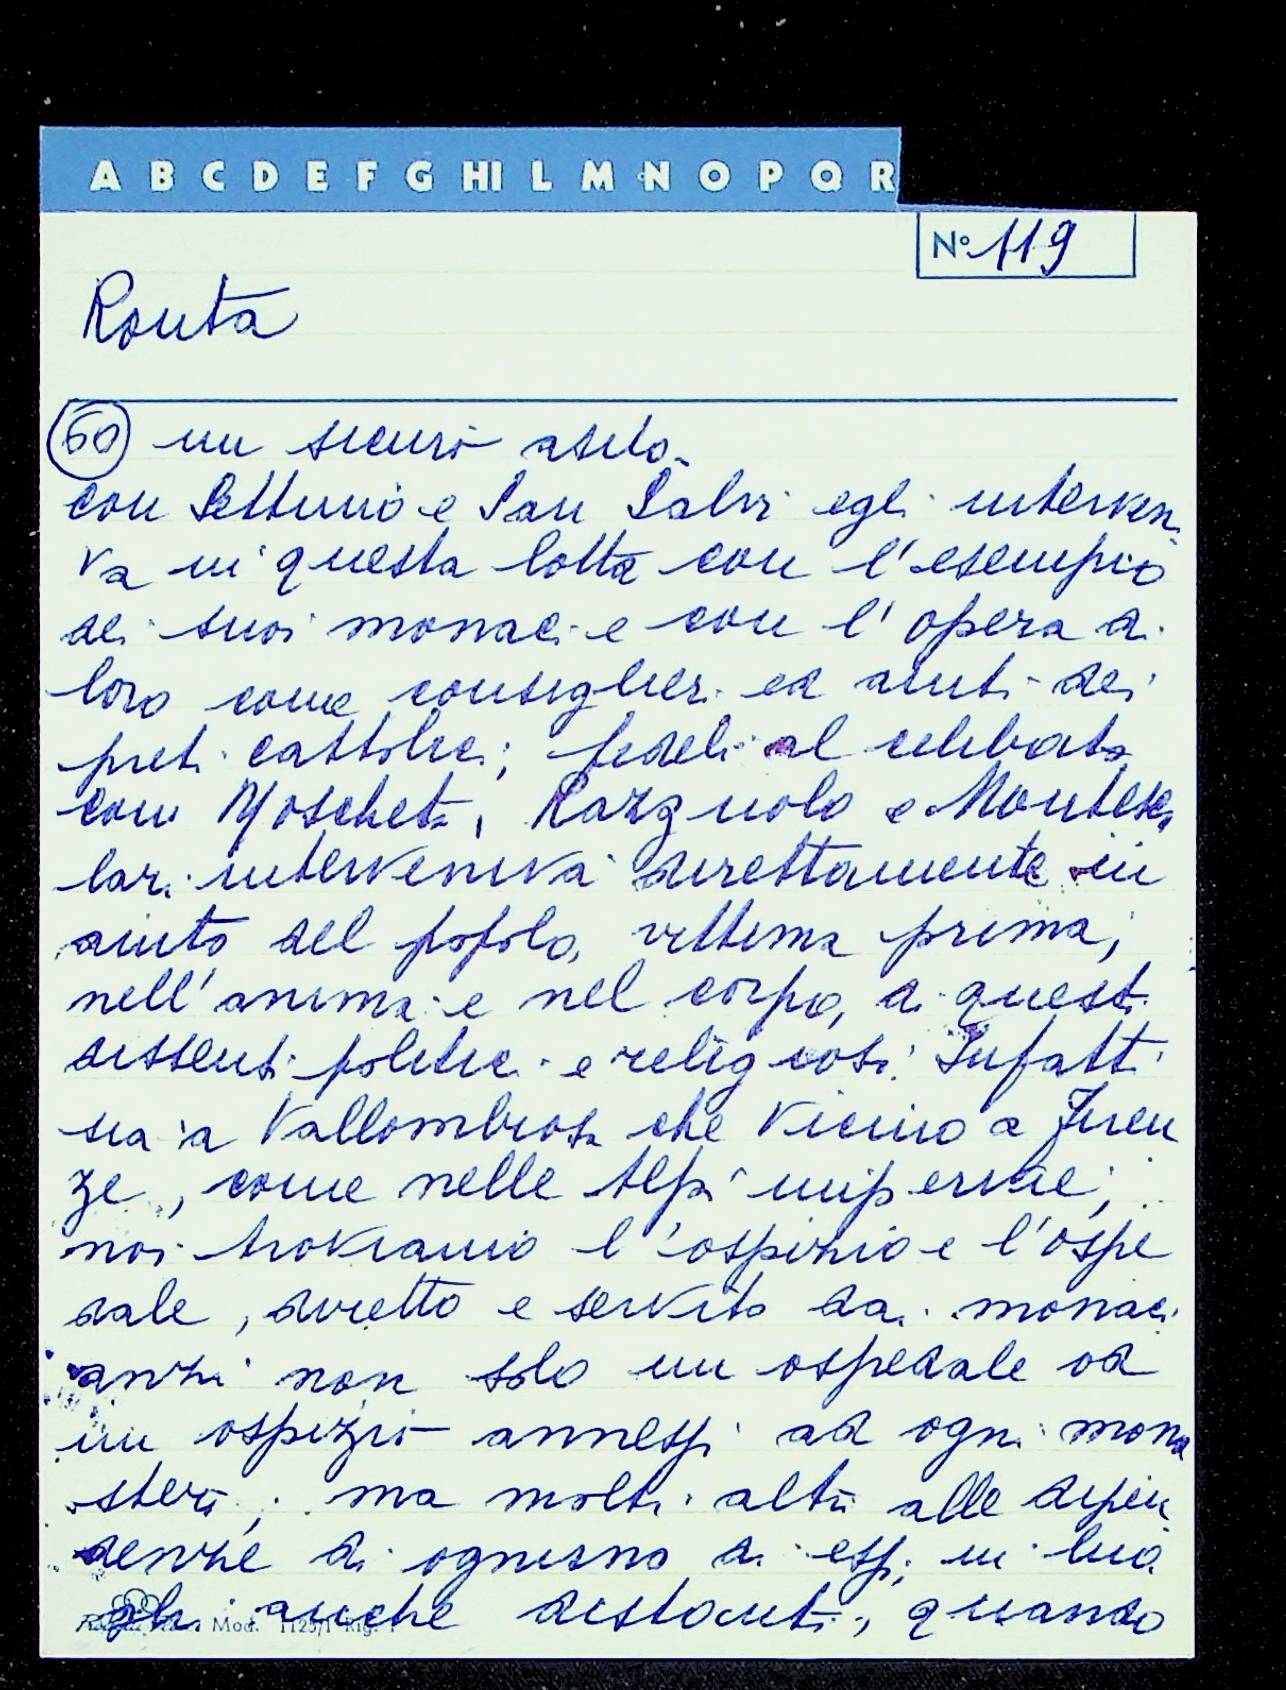 A B C D E F G HI L M N O P Q R
N° 119
Ronta
60 un sicuro asilo.
con Settimo e San Salvi egli interveni
va in questa lotta con l'esempio
dei suoi monaci e con l'opera di
loro come consiglieri ed aiuti dei
preti cattolici; fedeli al celibato
con Moscheta, Razzuolo e Montesca
lari interveniva direttamente in
aiuto del popolo, vittima prima,
nell'anima e nel corpo, di questi
dissensi politici e religiosi. Infatti
sia a Vallombrosa che vicino a Firen
ze, come nelle Alpi impervie;
noi troviamo l'ospizio e l'ospe
dale, diretto e servito dai monaci
anzi non solo un ospedale od
un ospizio annessi ad ogni mona
stero; ma molti altri alle dipen
denze di ognuno di essi, in luo
ghi anche distanti, quando
Mod. 1125/1 Rig.